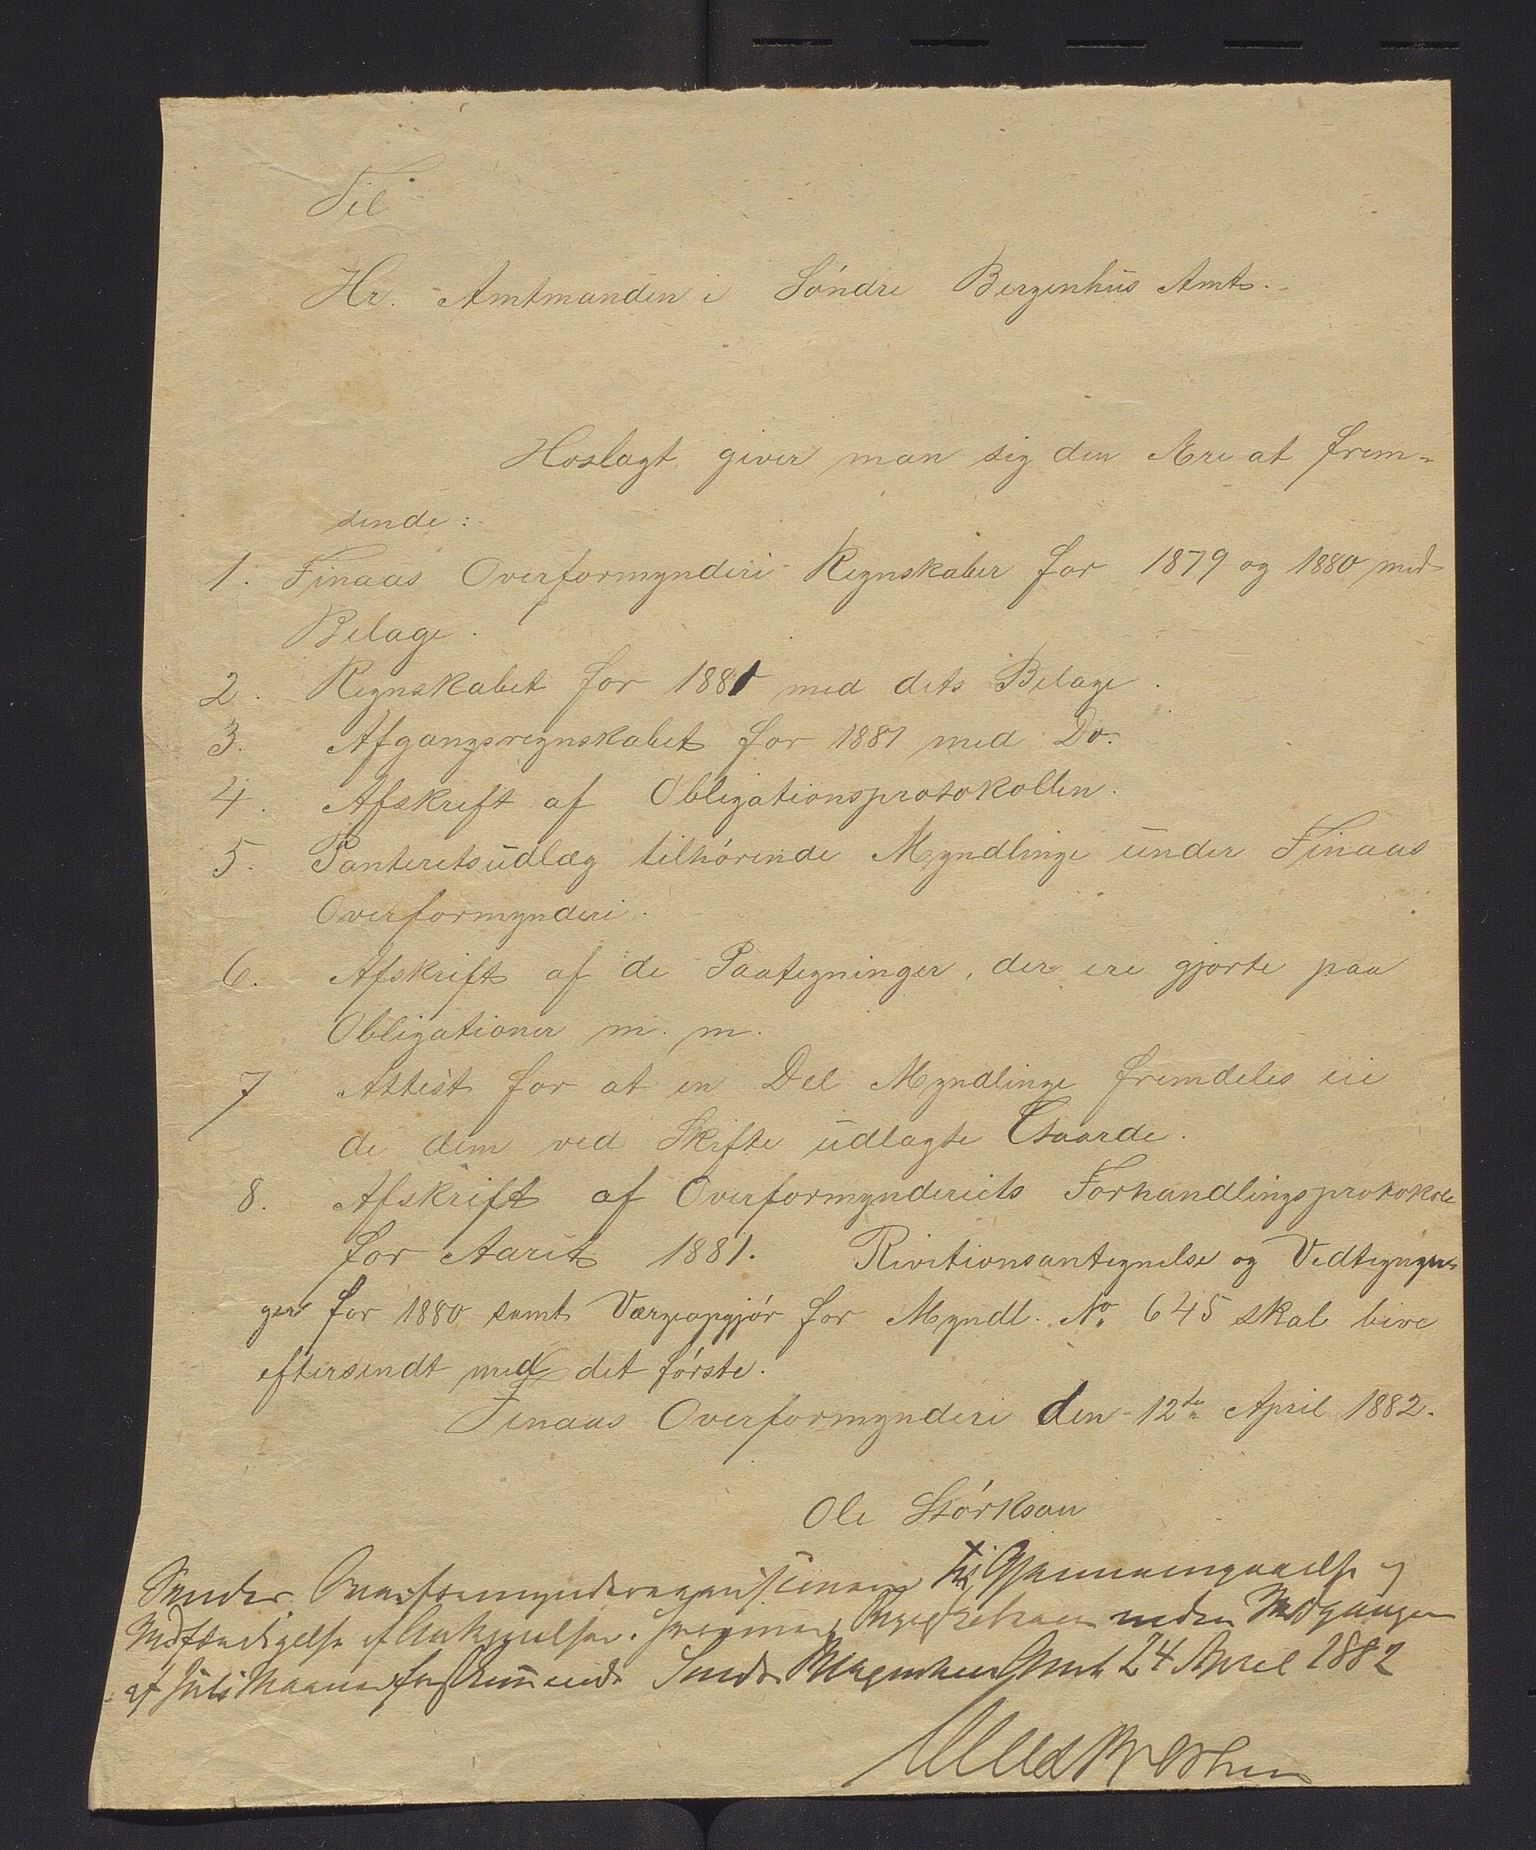 Til
Hr. Amtmanden i Søndre Bergenhus Amt.
Hoslagt giver man sig den Ære at frem-
sende:
1. Finaas Overformynderi Regnskaber for 1879 og 1880 med
Belage.
2. Regnskabet for 1881 med dets Belage.
3. Afgangsregnskabet for 1881 med Do.
4. Afskrift af Obligationsprotokollen.
5. Panteretsudlæg tilhørende Myndlinge under Finaas
Overformynderi.
6. Afskrift af de Paategninger, der ere gjorte paa
Obligationer m. m.
7 Attest for at en Del Myndlinge fremdeles eie
de dem ved Skifte udlagte Gaarde.
8. Afskrift af Overformynderiets Forhandlingsprotokol
for Aaret 1881. Rivitionsantegnelse og Vedtegnin-
ger for 1880 samt Værgeopgjør for Myndl. No 645 skal bive
eftersendt med det første.
Finaas Overformynderi den 12te April 1882.
Ole Størkson
Sendes til Gjennemgaaelse
inden Udgangen
af Juli Maaned Søndre Bergenhus Amt 24 April 1882